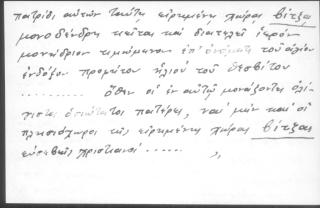 πατρίδι αὐτῶν ταύτῃ εἰρημένῃ χώρᾳ Βίτζα
μονοδένδρη κεῖται καὶ διατελεῖ ἱερὸν
μονύδριον τιμώμενον ἐπ' ὀνόματι τοῦ ἁγίου
ἐνδόξου προφήτου Ἠλιοῦ τοῦ Θεσβίτου
......... ὅθεν οἱ ἐν αὐτῷ μονάζοντες
πατέρες, ναὶ μὴν καὶ οἱ
πλησιόχωροι τῆς εἰρημένης χώρας Βίτζας
εὐσεβεῖς χριστιανοί ......